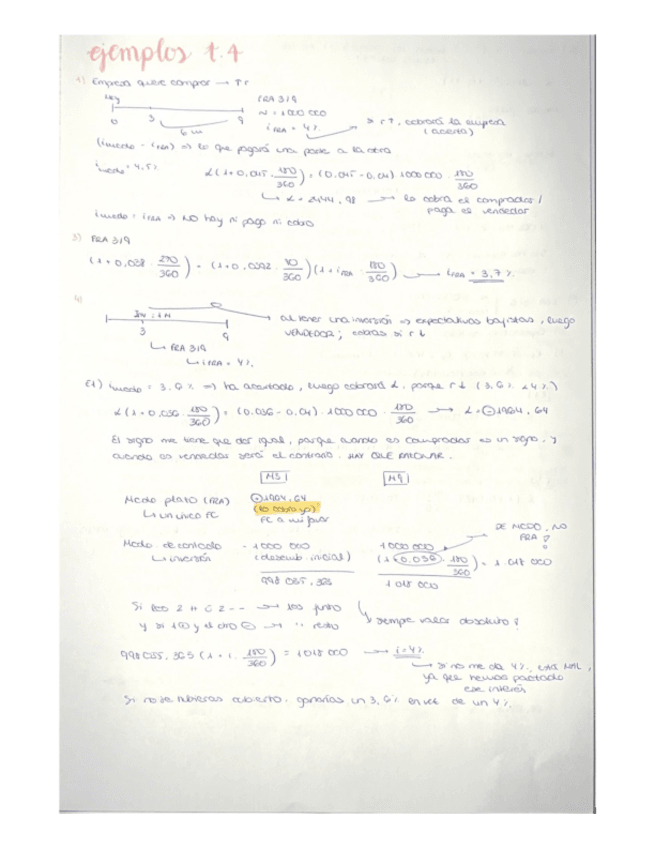 ejemplos t.4
1) Empresa quiere comprar → ↑r
Hoy
FRA 3/9
0 3 9
N = 1000 000
6 m
i FRA = 4%
→ r↑, cobrará la empresa
(acierta)
(i mcdo - i FRA) ⇒ lo que pagará una parte a la otra
i mcdo = 4,5%
L(1+0,045 · 180/360) = (0,045 - 0,04) 1000 000 · 180/360
↳ L = 2444,98 → lo cobra el comprador /
paga el vendedor
i mcdo = i FRA ⇒ NO hay ni pago ni cobro
3) FRA 3/9
(1 + 0,038 · 270/360) = (1+0,0392 · 90/360)(1+ i FRA · 180/360) → i FRA = 3,7%
4)
3 9
al tener una inversión ⇒ expectativas bajistas, luego
VENDEDOR; cobras si r↓
↳ FRA 3/9
↳ i FRA = 4%.
C1) i mcdo = 3,6% ⇒ ha acertado, luego cobrará L, porque r↓ (3,6% < 4%)
L(1+0,036 · 180/360) = (0,036 - 0,04) · 1000 000 · 180/360 → L = ⊖1964,64
El signo me tiene que dar igual, porque cuando es comprador es un signo, y
cuando es vendedor será el contrario. HAY QUE RAZONAR.
M3 M9
Mcdo plazo (FRA) ⊖1964,64
↳ un único FC (lo cobro yo)
FC a mi favor
DE MCDO, NO
FRA!
Mcdo de contado - 1000 000 1000 000
↳ inversión (desemb. inicial) (1+0,036 · 180/360) = 1 018 000
998 035,365 1 018 000
Si pero 2 + ó 2 - - → los junto
y si 1 ⊕ y el otro ⊖ → " resto
siempre valor absoluto!
998 035,365 (1 + i · 180/360) = 1 018 000 → i = 4%
↳ si no me da 4%, está MAL,
ya que hemos pactado
ese interés
Si no se hubieras cubierto, ganarías un 3,6% en vez de un 4%.